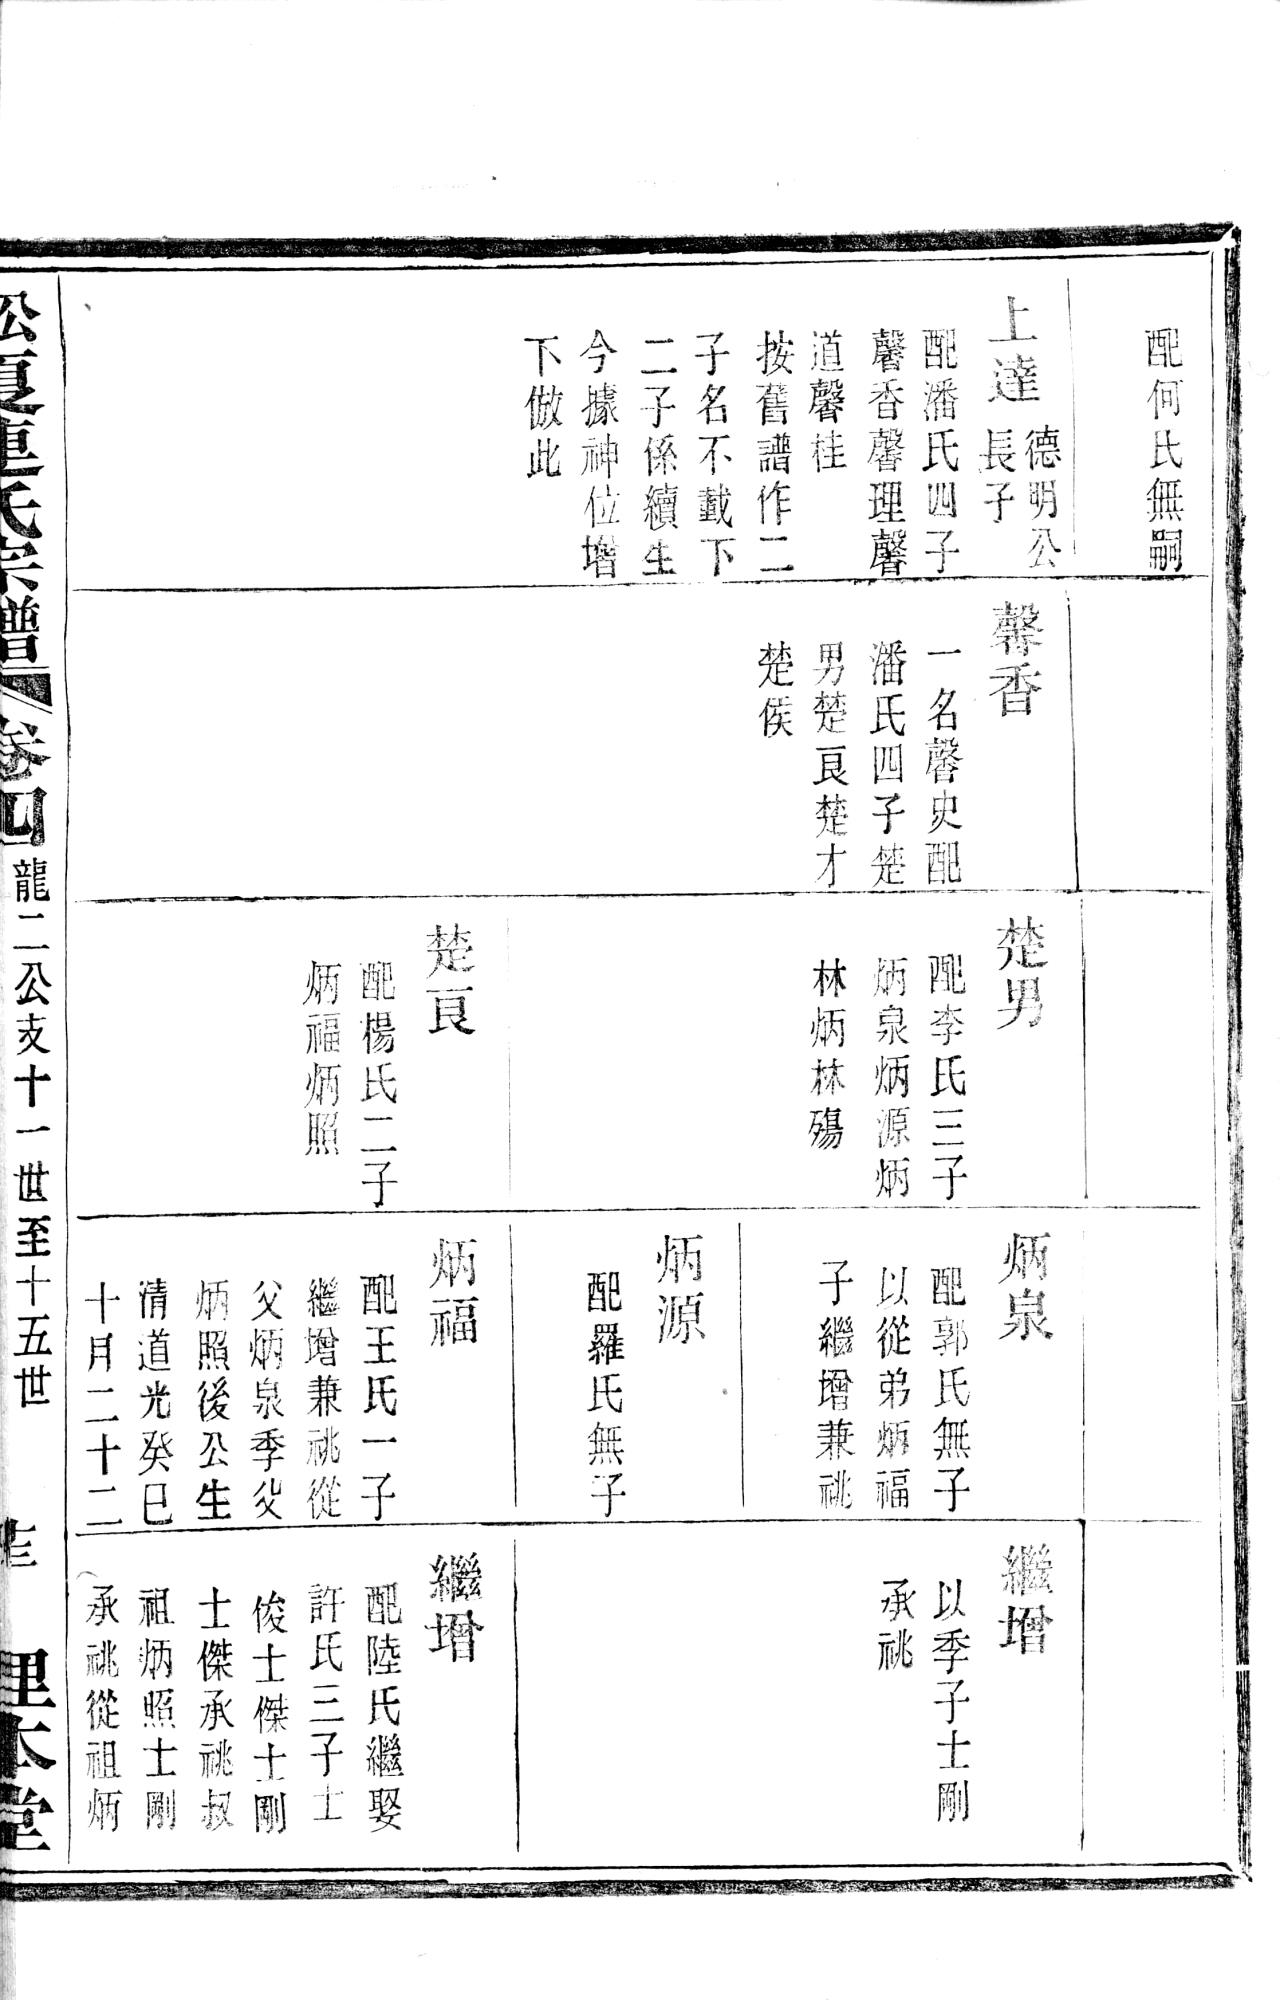 配何氏無嗣
上達
德明公
長子
配潘氏四子
馨香馨理馨
道馨桂
按舊譜作二
子名不載下
二子係續生
今據神位增
下倣此
馨香
一名馨史配
潘氏四子楚
男楚良楚才
楚侯
楚男
配李氏三子
炳泉炳源炳
林炳林殤
楚良
配楊氏二子
炳福炳照
炳泉
配郭氏無子
以從弟炳福
子繼增兼祧
炳源
配羅氏無子
炳福
配王氏一子
繼增兼祧從
父炳泉季父
炳照後公生
清道光癸巳
十月二十二
繼增
以季子士剛
承祧
繼增
配陸氏繼娶
許氏三子士
俊士傑士剛
士傑承祧叔
祖炳照士剛
承祧從祖炳
松夏連氏宗譜
卷四
龍二公支十一世至十五世
理本堂